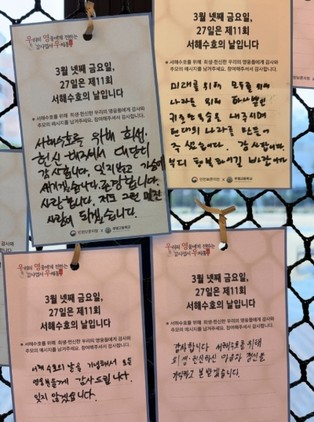 우리의 영웅에게 전하는
감사엽서 우체통
3월 넷째 금요일,
27일은 제11회
서해수호의 날입니다
서해수호를 위해 희생·헌신한 우리의 영웅들에게 감사와
추모의 메시지를 남겨주세요. 참여해주셔서 감사합니다.
서해수호를 위해 희생,
헌신 해주셔서 대단히
감사합니다. 잊지않고 가슴에
새기겠습니다. 존경합니다.
사랑합니다. 저도 그런 멋진
사람이 되겠습니다.
인천보훈지청
3월 넷째 금요일,
27일은 제11회
서해수호의 날입니다
서해수호를 위해 희생·헌신한 우리의 영웅들에게 감사와
추모의 메시지를 남겨주세요. 참여해주셔서 감사합니다.
미래를 위해 모두를 위해
나라를 위해
귀한 목숨을 내주시며
현재의 나라를 만들어
주셨습니다. 감사합니다.
부디 행복하시길 바랍니다
인천보훈지청
우리의 영웅에게 전하는
감사엽서 우체통
3월 넷째 금요일,
27일은 제11회
서해수호의 날입니다
서해수호를 위해 희생·헌신한 우리의 영웅들에게 감사와
추모의 메시지를 남겨주세요. 참여해주셔서 감사합니다.
서해 수호의 날을 기념해서 모든
영웅분들께 감사드립니다
잊지 않겠습니다.
우리의 영웅에게 전하는
감사엽서 우체통
3월 넷째 금요일,
27일은 제11회
서해수호의 날입니다
서해수호를 위해 희생·헌신한 우리의 영웅들에게 감사와
추모의 메시지를 남겨주세요. 참여해주셔서 감사합니다.
감사합니다. 서해수호를 위해
희생·헌신하신 마음과 정신을
기억하고 본받겠습니다.